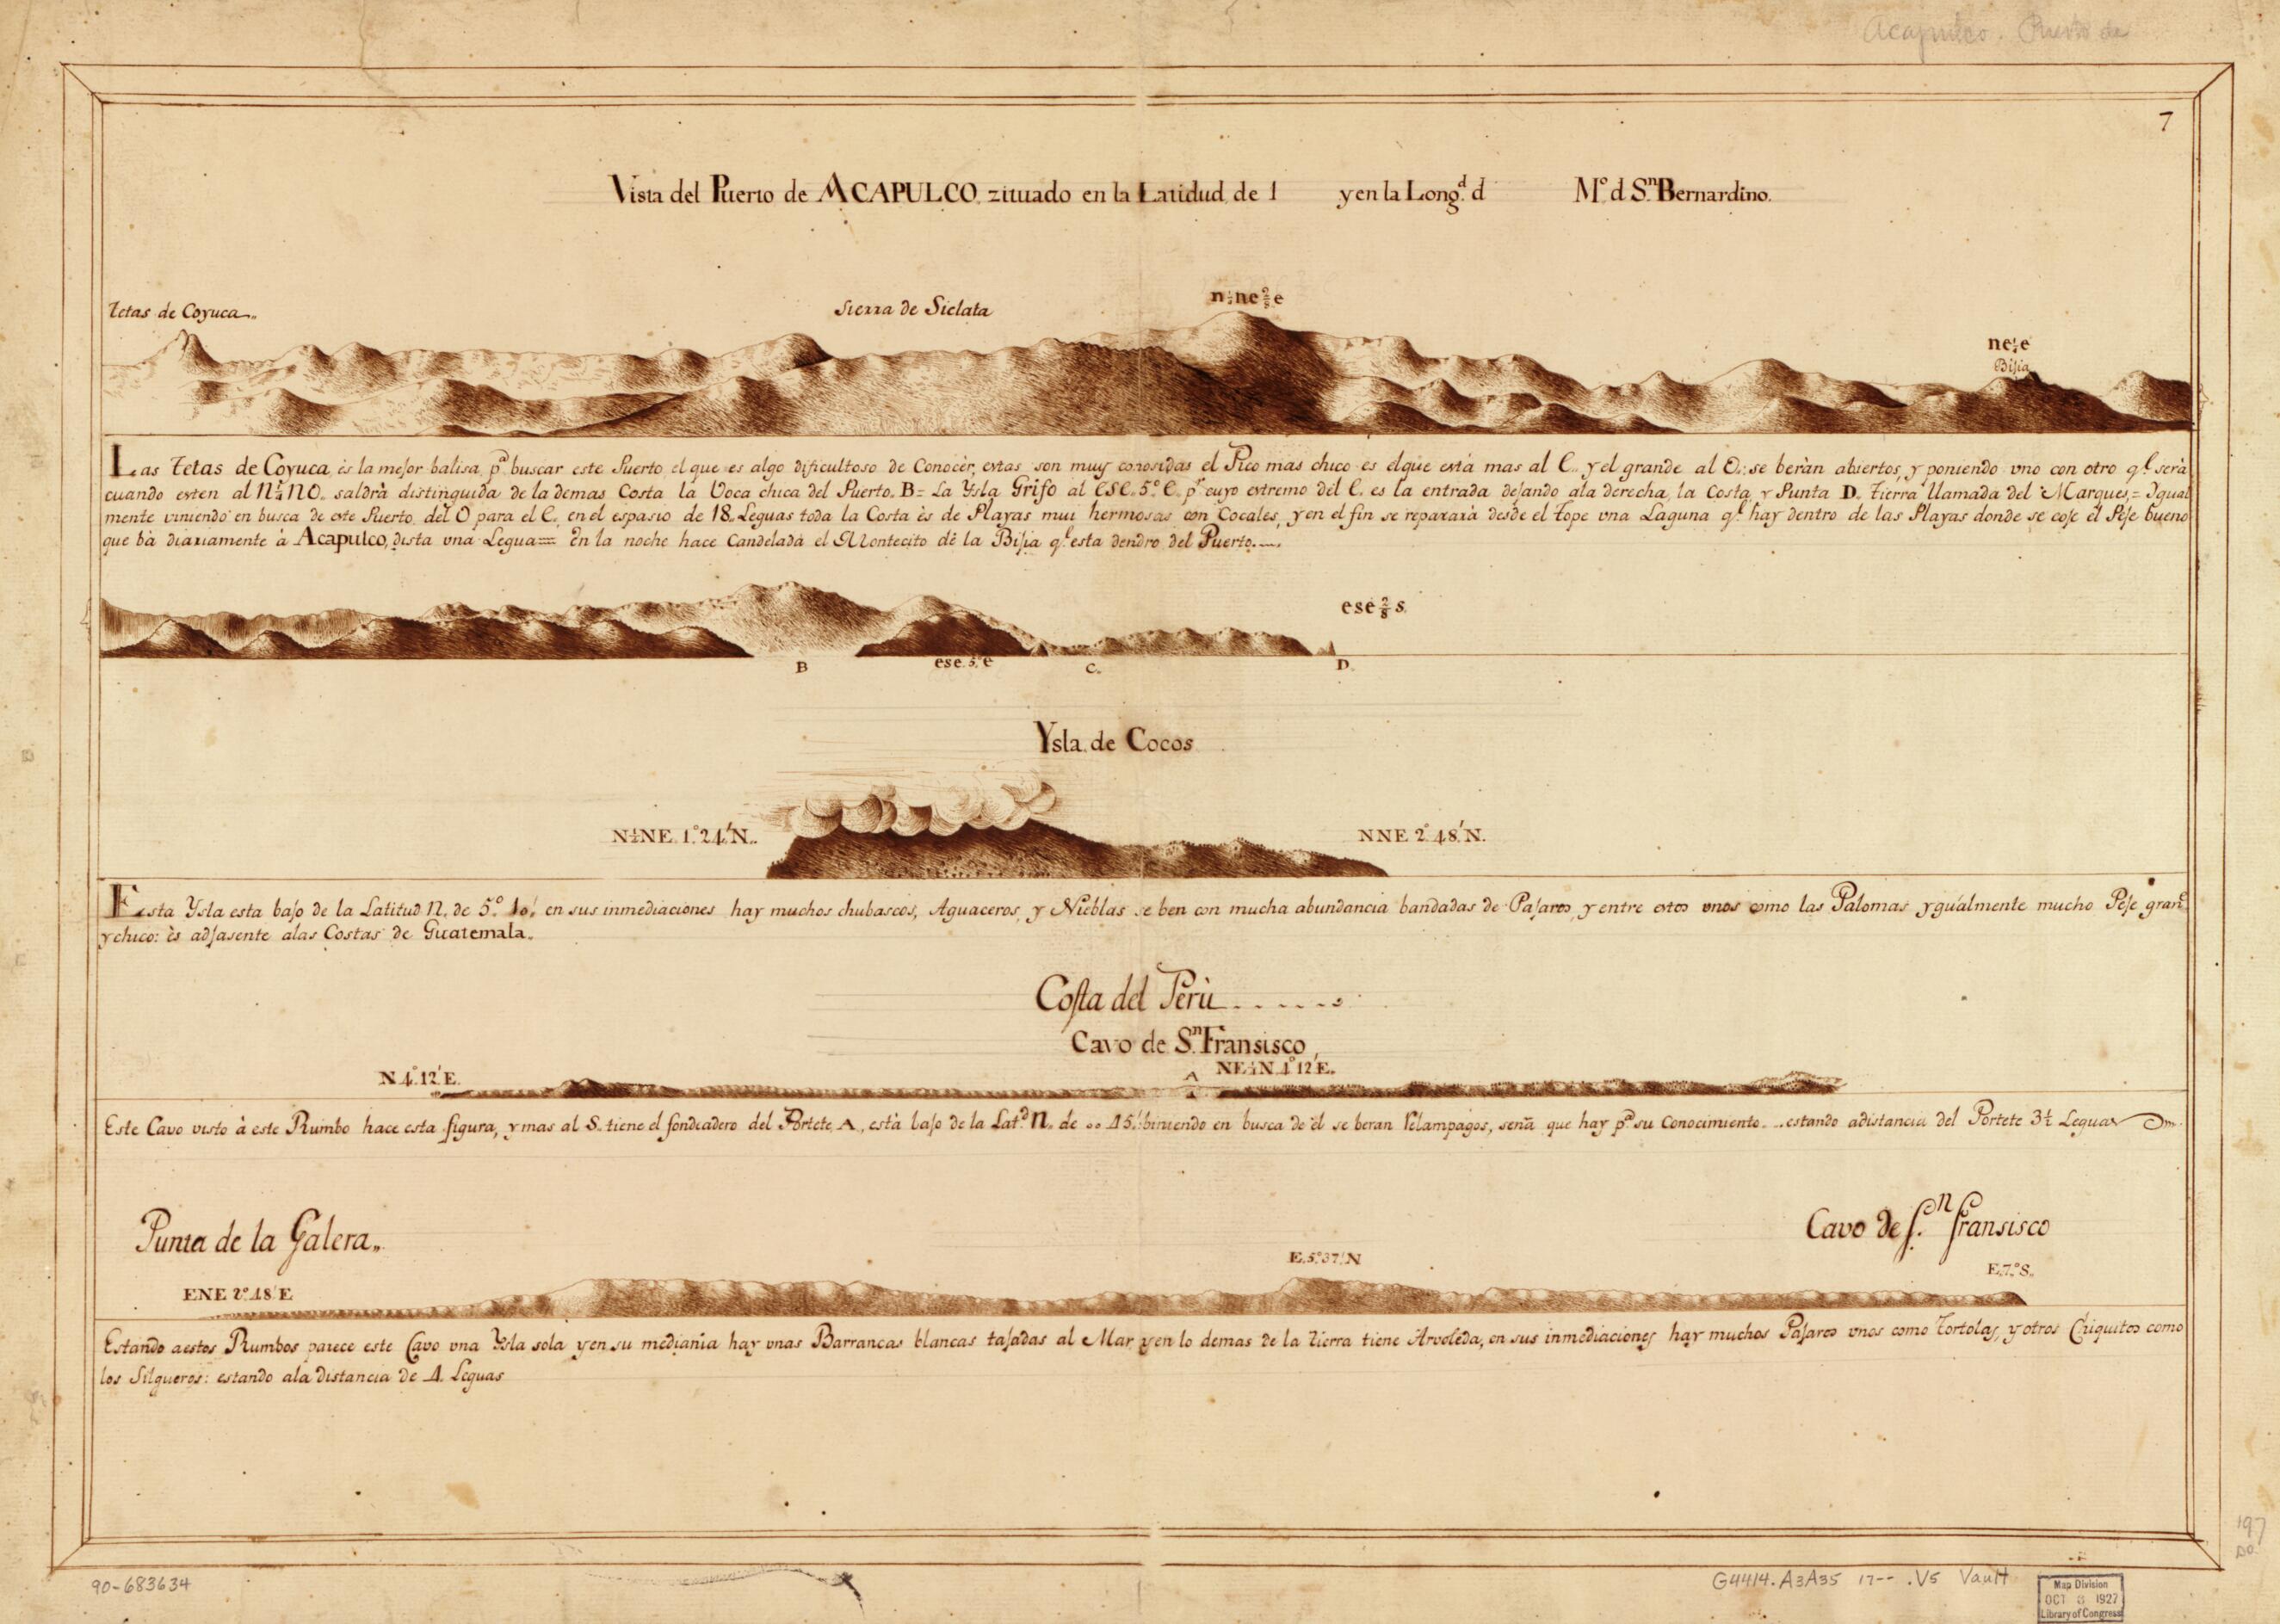 Acapulco. Puerto de
7
Vista del Puerto de ACAPULCO, zituado en la Latidud, de 1 y en la Long.d d Mo. d Sn. Bernardino.
Tetas de Coyuca.
Sierra de Siclata
n¼ne 2/8 e
ne¼e
Bijia
Las Tetas de Coyuca, ès la mejor balisa, pa. buscar este Puerto el que es algo dificultoso de Conocèr, estas son muy conosidas el Pico mas chico es elque està mas al E. y el grande al O.: se beràn abiertos, y poniendo uno con otro ql. serà
cuando esten al N¼NO. saldrà distinguida de la demas Costa la Voca chica del Puerto. B= La Ysla Grifo al ESE. 5.o E. pr. cuyo extremo del E. es la entrada dejando ala derecha, la Costa, y Punta D. Tierra llamada del Marques,= Igual
mente viniendo en busca de este Puerto del O para el E., en el espasio de 18. Leguas toda la Costa ès de Playas mui hermosas con Cocales, y en el fin se repararà desde el tope una Laguna ql. hay dentro de las Playas donde se coje el Peje bueno
que bà diariamente à Acapulco, dista una Legua= En la noche hace Candelada el Montecito de la Bijia ql. esta dendro del Puerto.
ese 2/8 s.
B
ese. 5.o e
C.
D.
Ysla. de Cocos
N¼NE. 1.o 24.' N.
NNE 2.o 48.' N.
Esta Ysla esta bajo de la Latitud N. de 5.o 10.' en sus inmediaciones hay muchos chubascos, Aguaceros, y Nieblas se ben con mucha abundancia bandadas de Pajaros, y entre estos unos como las Palomas ygualmente mucho Peje grande
y chico: ès adjasente alas Costas de Guatemala.
Costa del Perù
Cavo de Sn. Fransisco,
N 4.o 12.' E.
A
NE¼N 1.o 12' E.
Este Cavo visto à este Rumbo hace esta figura, y mas al S. tiene el fondeadero del Portete, A, està bajo de la Latd. N. de oo 45.' biniendo en busca de èl se beran relampagos, señā que hay pa. su Conocimiento. estando adistancia del Portete 3½ Leguas
Punta de la Galera.
Cavo de Sn. Fransisco
E. 5.o 37.' N
E. 7.o S.
ENE 2.o 48.' E
Estando aestos Rumbos parece este Cavo una Ysla sola y en su medianìa hay unas Barrancas blancas tajadas al Mar y en lo demas de la tierra tiene Arvoleda, en sus inmediaciones hay muchos Pajaros unos como Tortolas, y otros Chiquitos como
los Silgueros: estando ala distancia de 4. Leguas
90-683634
G4414.A3A35 17-- .V5 Vault
Map Division
OCT 8 1927
Library of Congress
197